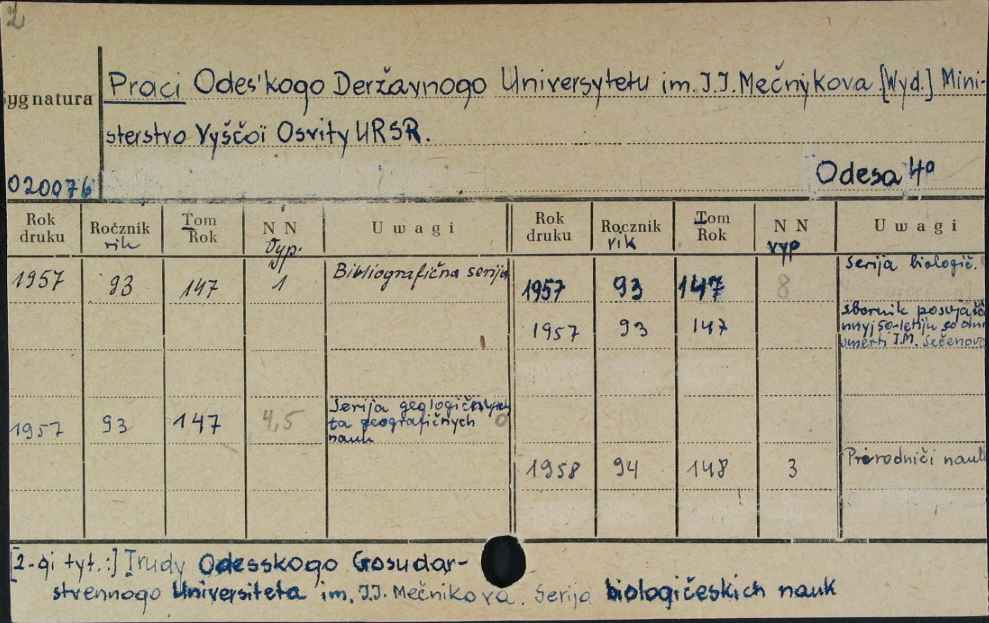 2
Praci Odes'kogo Deržavnogo Universytetu im. I.I. Mečnykova. [Wyd.] Mini-
ygnatura
sterstvo Vyščoï Osvity URSR.
020076
Odesa 4°
Rok druku Rocznik rik Tom Rok N N Vyp. Uwagi Rok druku Rocznik rik Tom Rok N N vyp Uwagi
1957 93 147 1 Bibliografična serija
1957 93 147 8 Serija biologič.
1957 93 147 sbornik posvjašče
nnyj 50-letiju so dnja
smerti I.M. Sečenova
1957 93 147 4,5 Serija geologičnych
ta geografičnych
nauk
1958 94 148 3 Prirodniči nauki
[2-gi tyt.:] Trudy Odesskogo Gosudar-
stvennogo Universiteta im. I.I. Mečnikova. Serija biologičeskich nauk